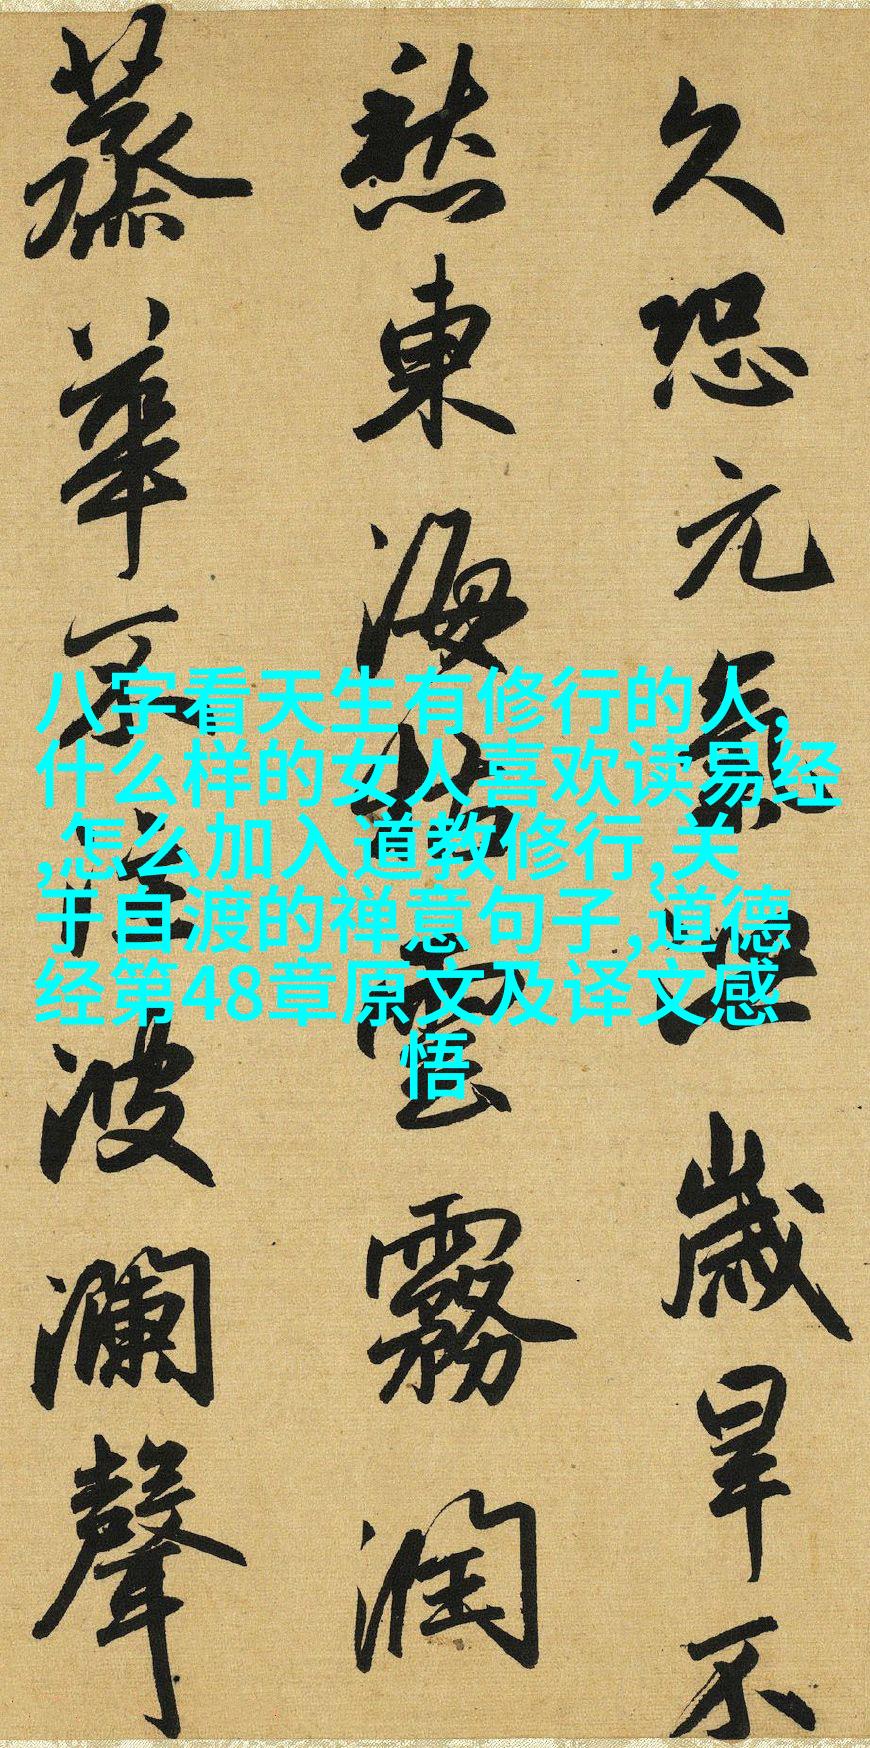 久恐元氣泄歲旱不
愁東海枯雲霧潤
蒸華不注波瀾聲
八字看天生有修行的人,
什么样的女人喜欢读易经
,怎么加入道教修行,关
于自渡的禅意句子,道德
经第48章原文及译文感
悟